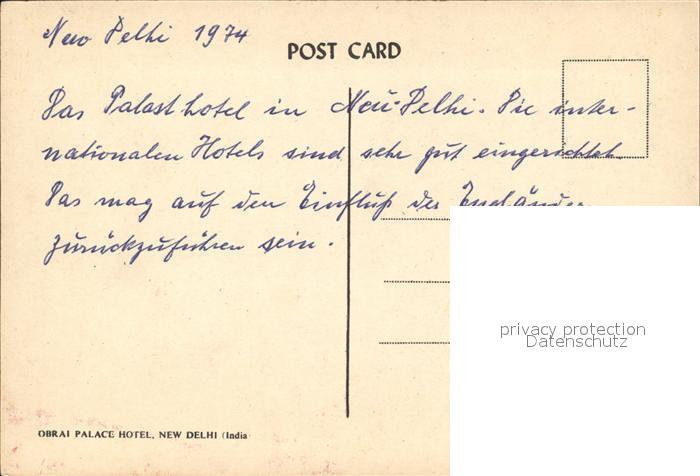 New Delhi 1974
POST CARD
Das Palasthotel in Neu-Delhi. Die inter-
nationalen Hotels sind sehr gut eingerichtet.
Das mag auf den Einfluß der Engländer
zurückzuführen sein.
privacy protection
Datenschutz
OBRAI PALACE HOTEL, NEW DELHI (India